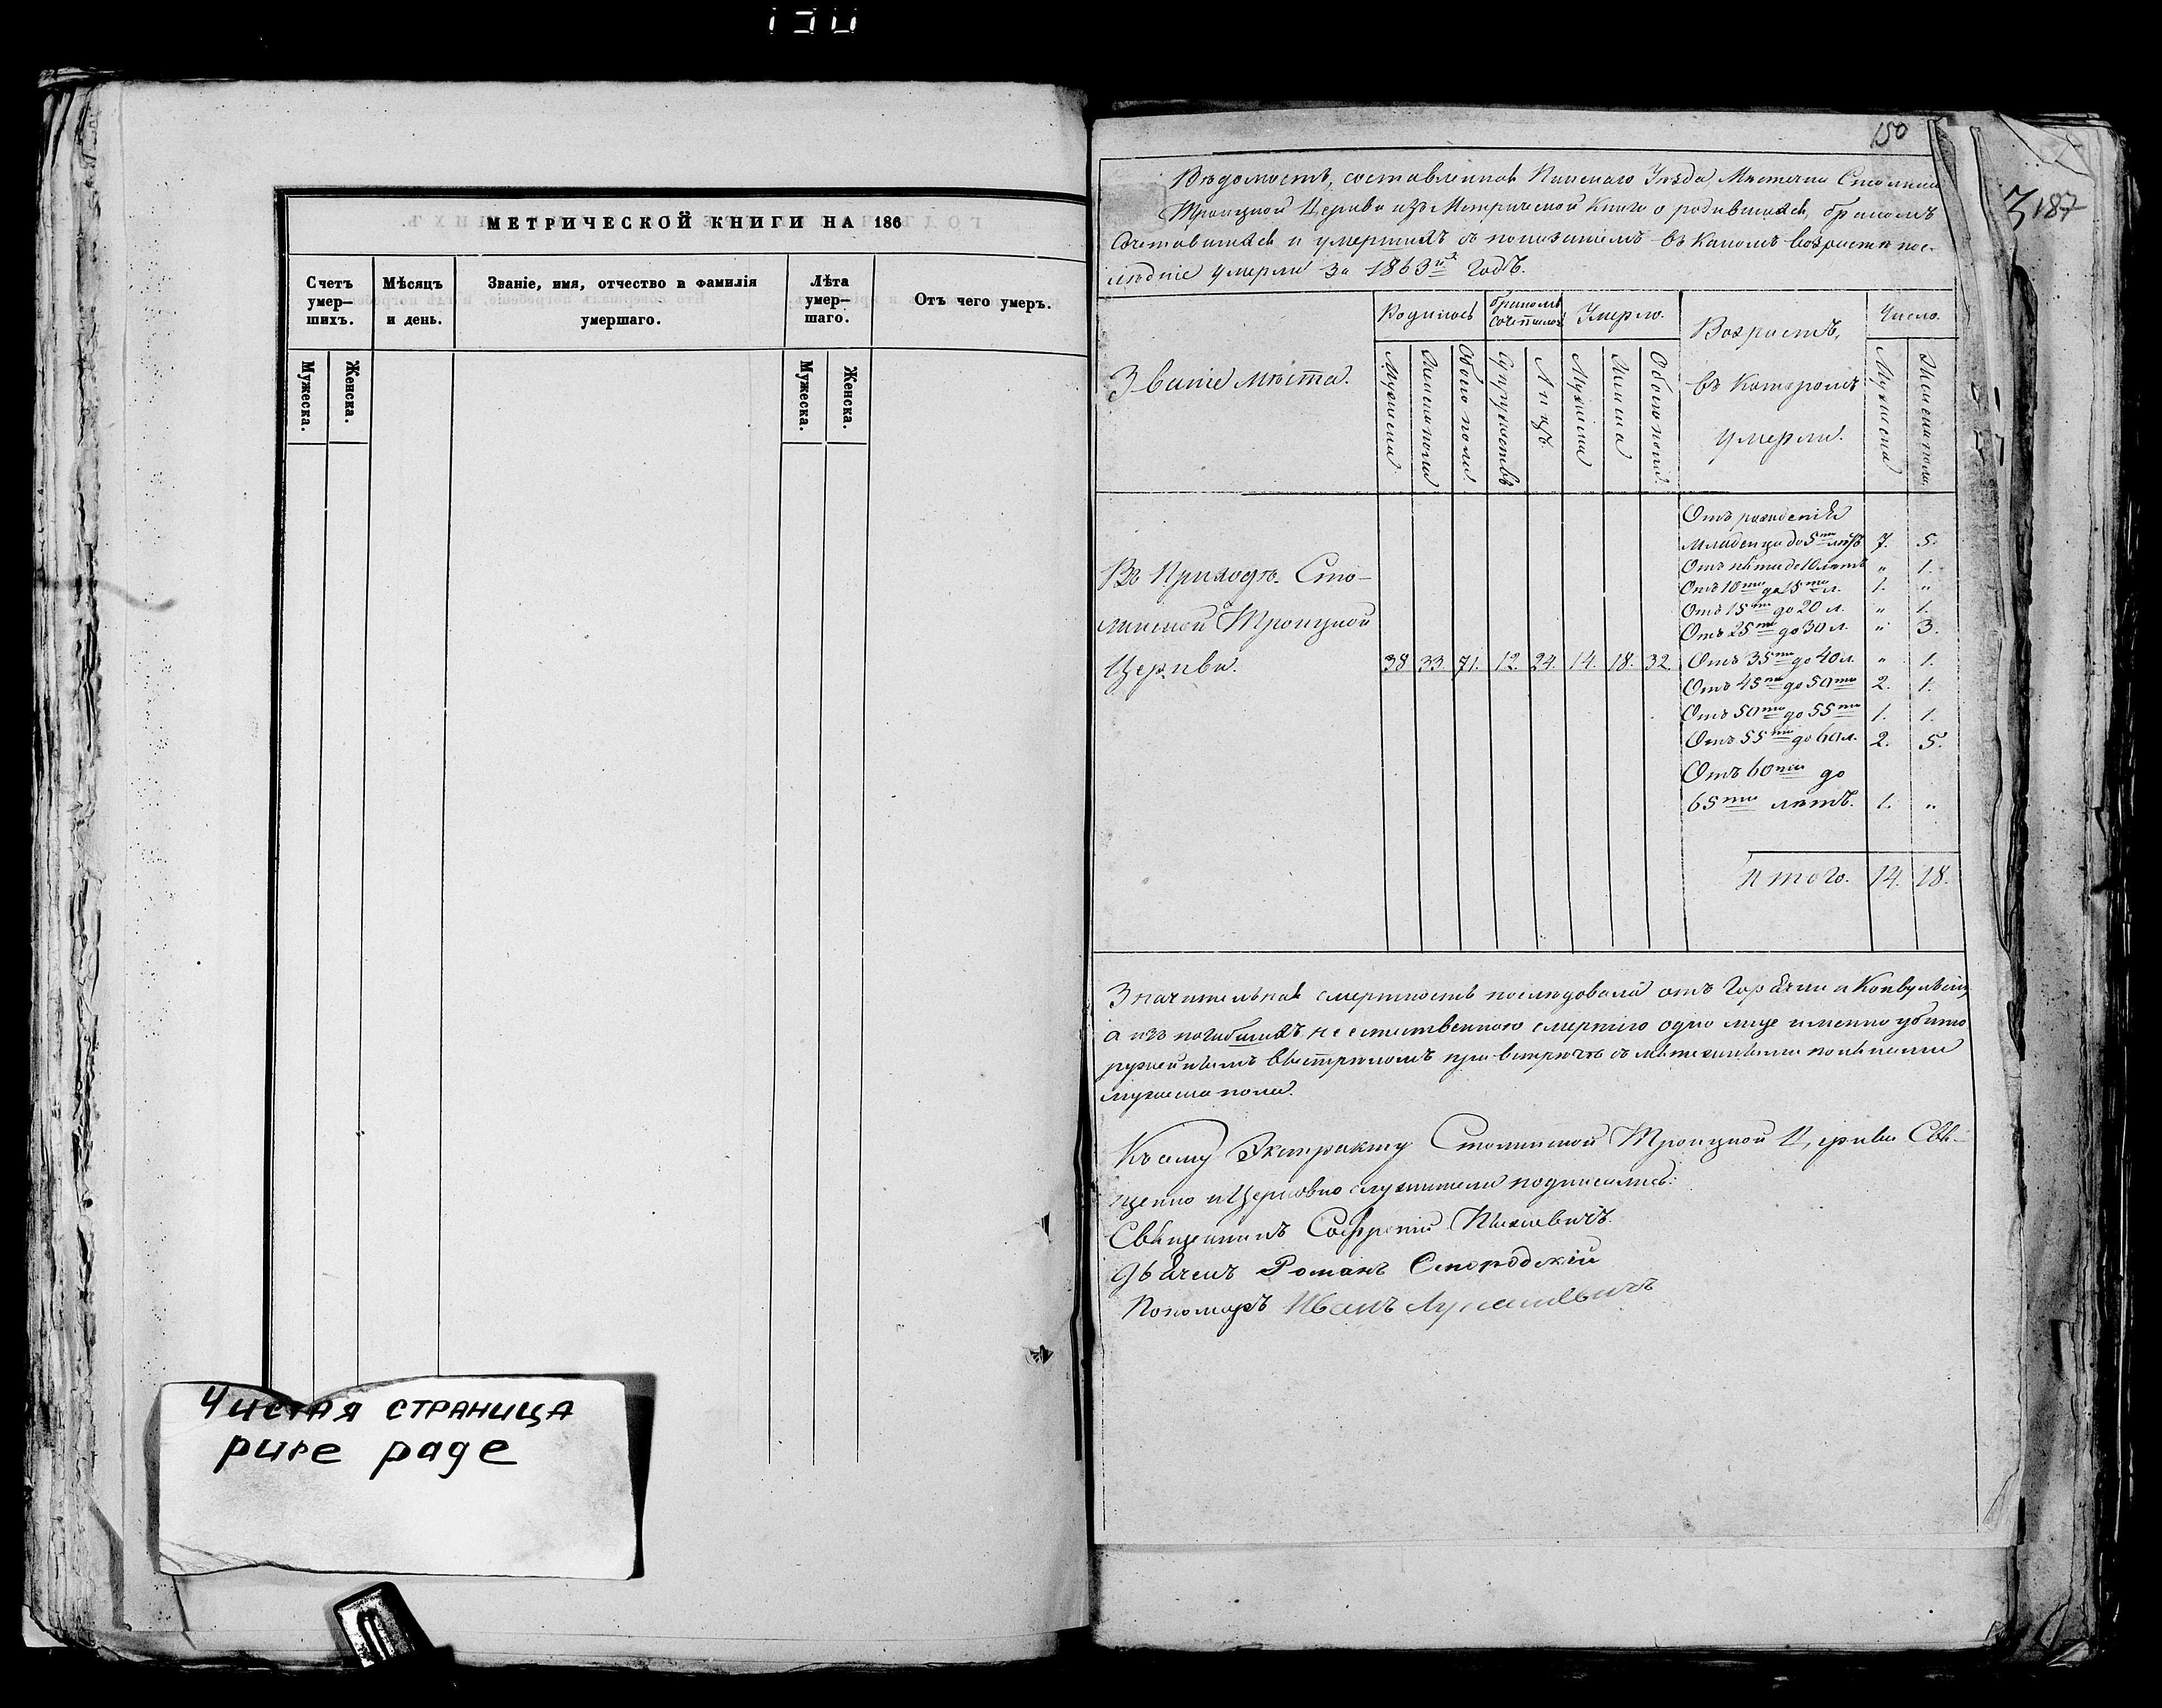 150
МЕТРИЧЕСКОЙ КНИГИ НА 186
Счетъ умер— шихъ.
Мѣсяцъ и день.
Званіе, имя, отчество и фамилія умершаго.
Лѣта умер— шаго.
Отъ чего умеръ.
Мужеска.
Женска.
Мужеска.
Женска.
Чистая страница
pure page
150
187
Вѣдомость, составленная Пинскаго Уѣзда Мѣстечка Столина
Троицкой Церкви изъ Метрической Книги о родившихся, бракомъ
сочетавшихся и умершихъ съ показаніемъ въ какомъ возрастѣ пос-
лѣдніе умерли за 1863й годъ.
Званіе мѣста.
Родилось
бракомъ сочеталось
Умерло.
Возрастъ,
въ которомъ
умерли.
Число.
Мужеска
Женска пола
Обоего пола.
Супружествъ
Лицъ.
Мужеска
Женска
Обоего пола.
Мужеска
Женска пола.
Отъ рожденія
младенца до 5ти лѣтъ 7. 5.
Отъ пяти до 10 лѣтъ " 1.
Отъ 10ти до 15ти л. 1. "
Отъ 15ти до 20 л. " 1.
Отъ 25ти до 30 л. " 3.
Въ Приходѣ Сто-
линской Троицкой
Церкви. 38 33. 71. 12. 24. 14. 18. 32 Отъ 35ти до 40 л. " 1.
Отъ 45ти до 50ти 2. 1.
Отъ 50ти до 55ти 1. 1.
Отъ 55ти до 60 л. 2. 5.
Отъ 60ти до
65ти лѣтъ. 1. "
Итого. 14. 18.
Значительная смертность послѣдовала отъ Горячки и Конвульсіи,
а изъ погибшихъ неестественною смертію одно лице именно убито
ружейнымъ выстрѣломъ при встрѣчѣ съ мятежниками поляками
мужеска пола.
Къ сему Экстракту Столинской Троицкой Церкви Свя-
щенно и Церковно служители подписались:
Священникъ Софроній
Дьячекъ Романъ Смородскій
Пономарь Иванъ Лукашевичъ